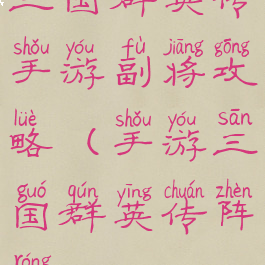 三国群英传
shǒu yóu fù jiāng gōng
手游副将攻
lüè shǒu yóu sān
略（手游三
guó qún yīng chuán zhèn
国群英传阵
róng